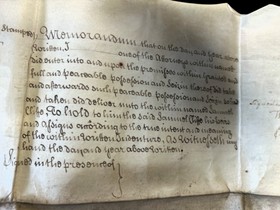 Stamped
Memorandum that on the day and year above
written, I one of the Attorneys within named
did enter into and upon the premises within granted
full and peaceable possession and Seizin thereof did take
and afterwards such peaceable possession and Seizin
and taken did deliver unto the within named
To hold to him the said Samuel his heirs
and Assigns according to the true intent and meaning
of the within written Indenture, As witness
hand the day and year above written
Signed in the presence of